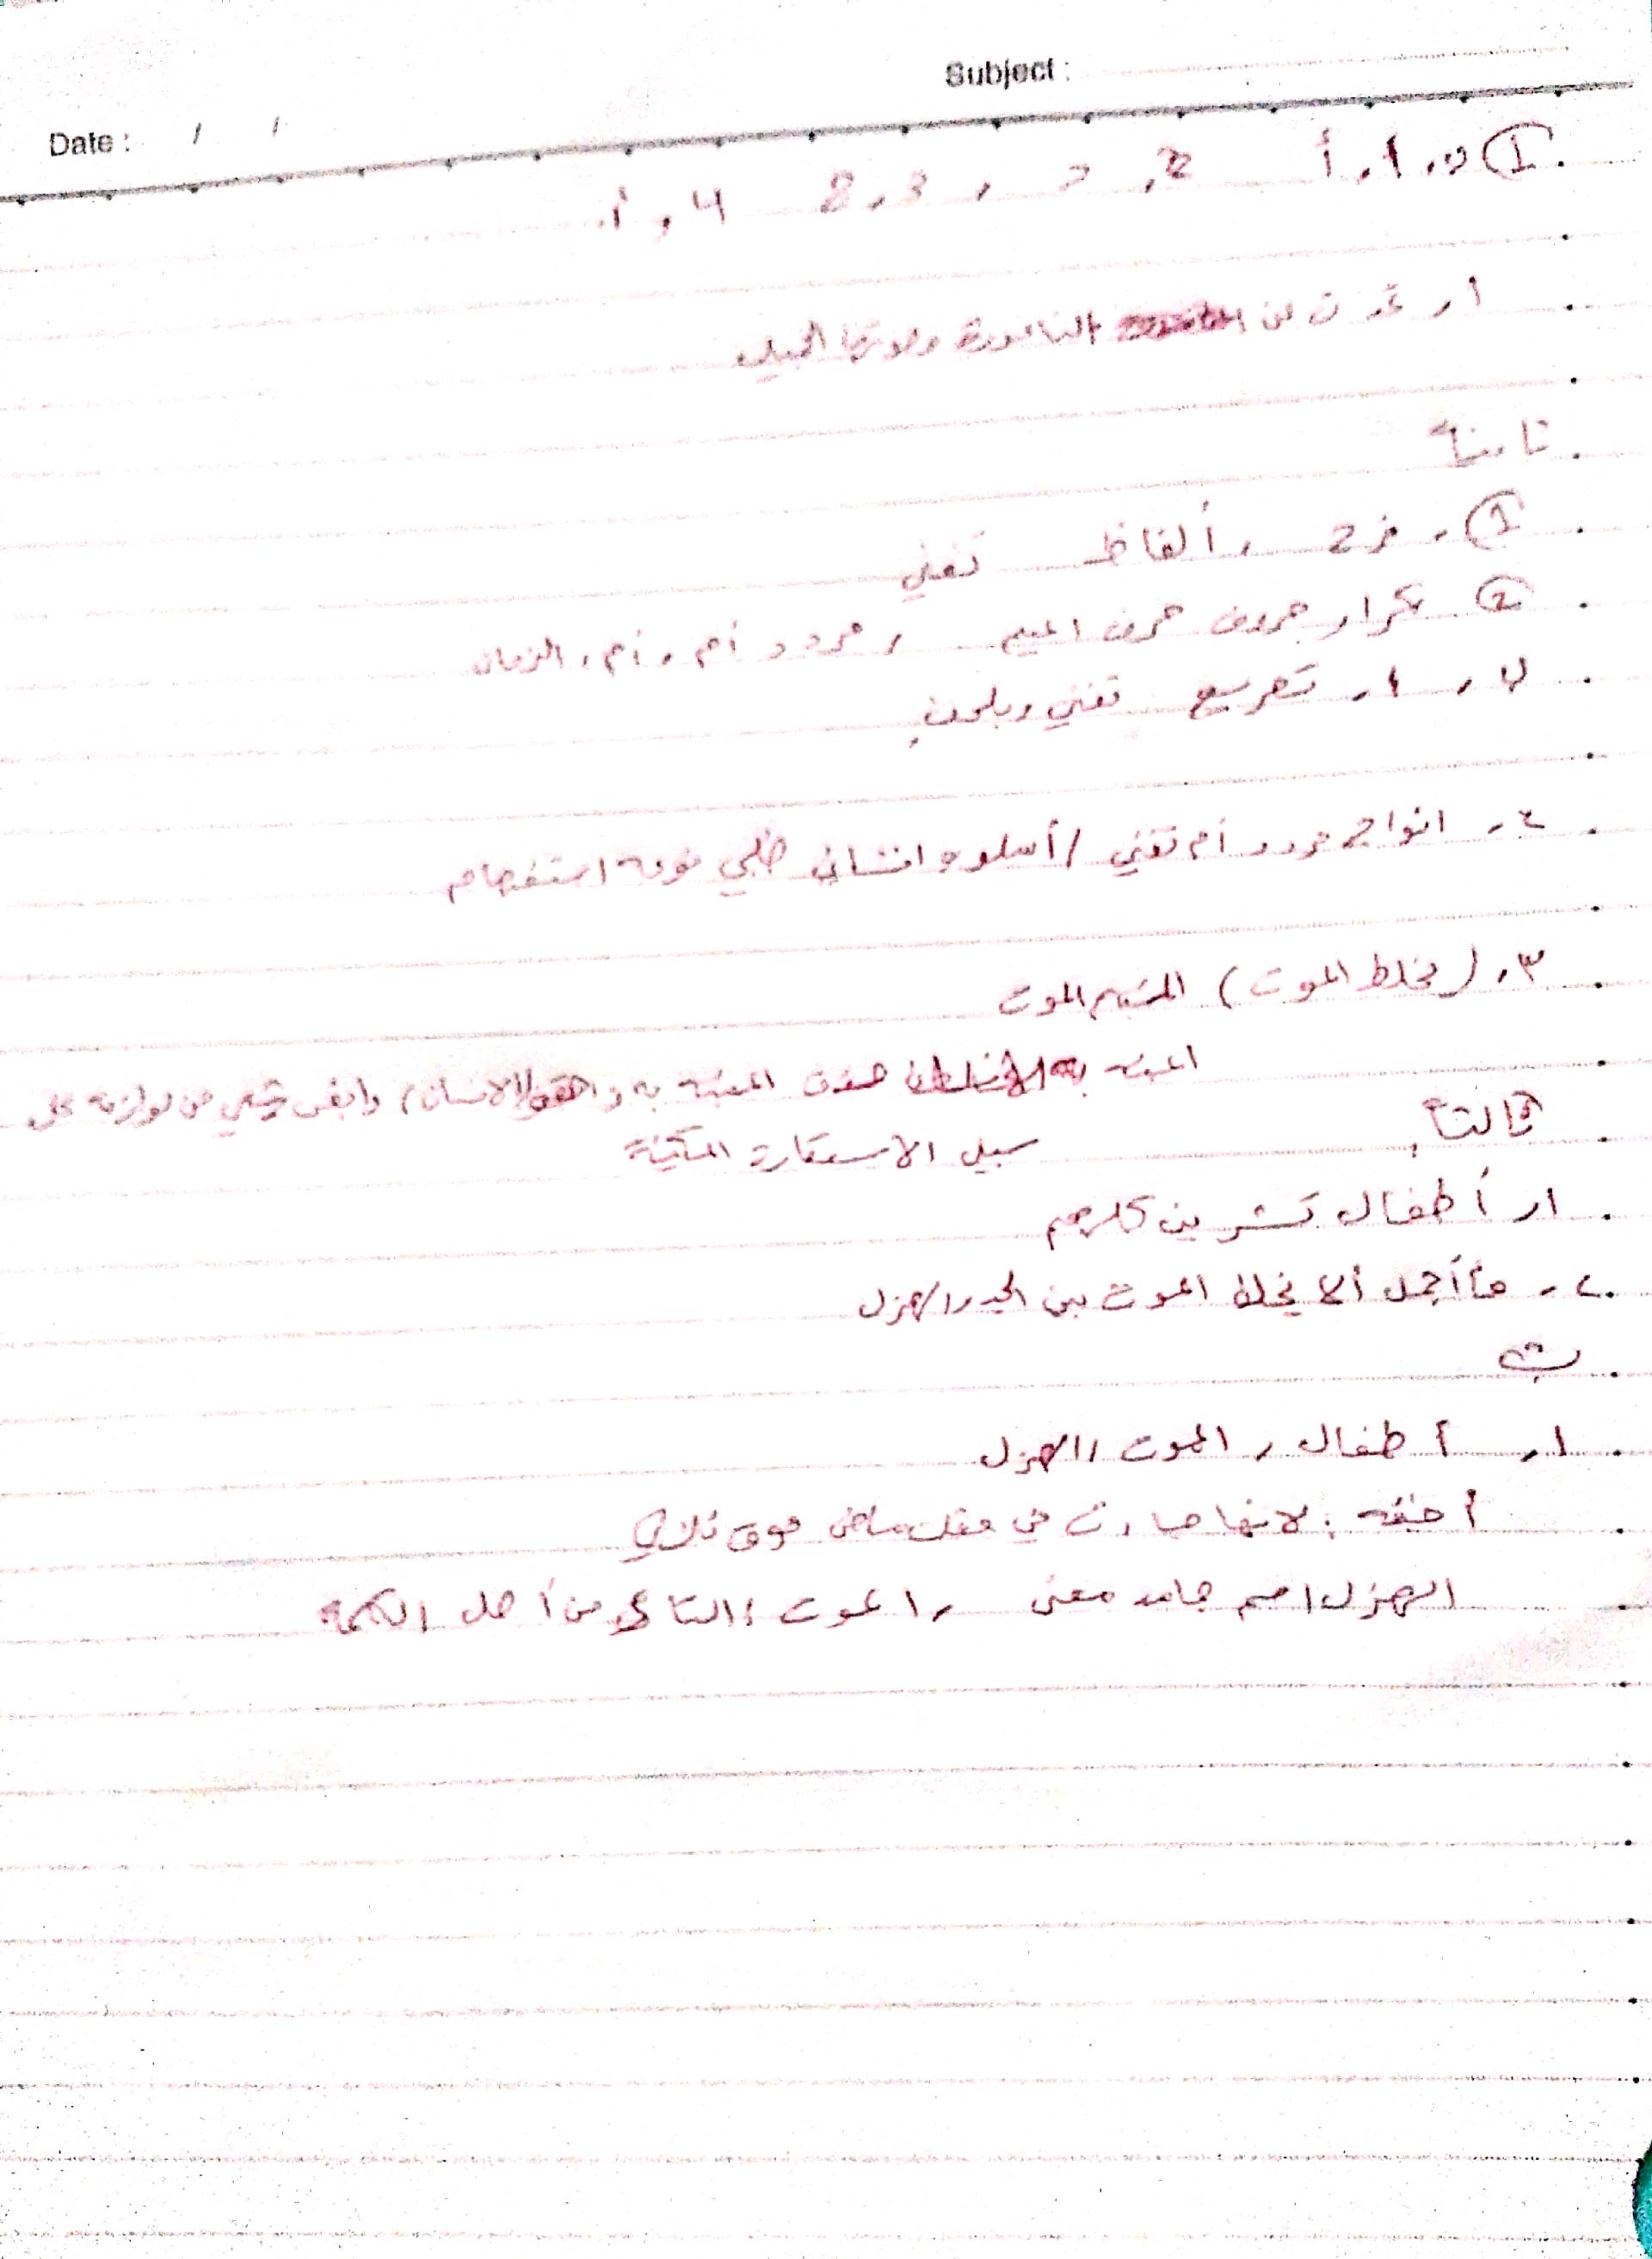 Subject :
Date : / /
① ب، 1، أ 2، د، 3، 8 4، أ.
1ـ تحدث عن الناعورة وصوتها الجميل
ثانياً
①ـ فرح، ألفاظ تغني
② تكرار حروف حرف الميم، مردد، أم، أم، الزمان
ب، 1ـ تصريع تغني وبلحن
2ـ انواح مردد أم تغني / أسلوب انشائي طلبي نوعه استفهام
3، (يخلط الموت) المشبه الموت
المشبه به حذف المشبه به وهو (الانسان) وابقى شيئ من لوازمه على
سبيل الاستعارة المكنية
ثالثاً
1ـ أطفال تشرين كلهم
2ـ ما أجمل ألا يخلط الموت بين الجد والهزل
ب
1ـ أطفال، الموت، الهزل
لانها جاءت في فعل ماضي فوق ثلاثي
الهزل اسم جامد معنى، الموت: التاء من أصل الكلمة